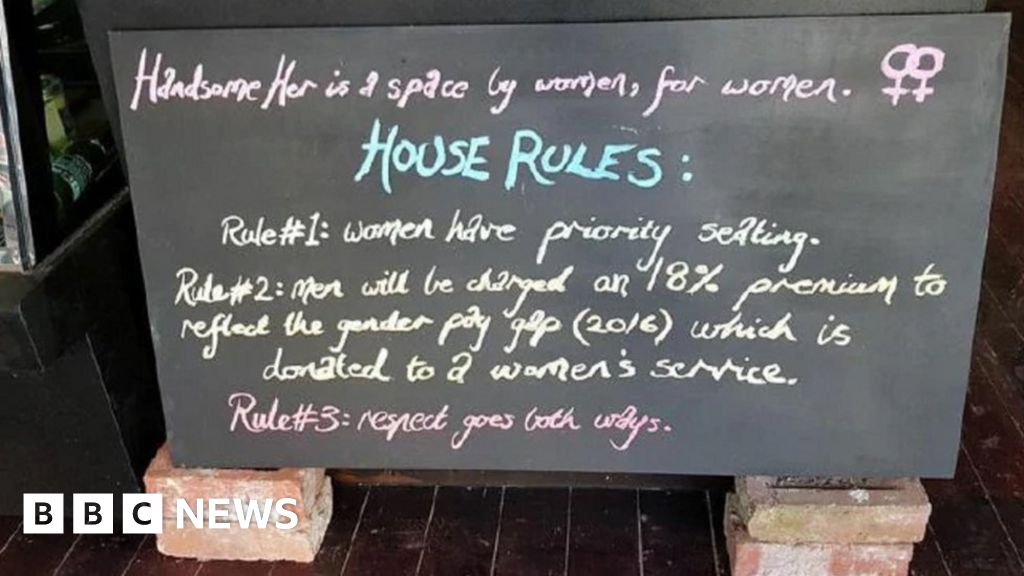 Handsome Her is a space by women, for women.
HOUSE RULES:
Rule#1: women have priority seating.
Rule#2: men will be charged an 18% premium to
reflect the gender pay gap (2016) which is
donated to a women's service.
Rule#3: respect goes both ways.
BBC NEWS